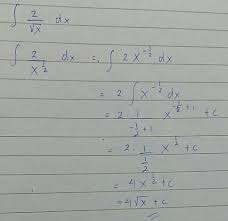 ∫ 2/√x dx
∫ 2/x^(1/2) dx = ∫ 2x^(-1/2) dx
= 2 ∫ x^(-1/2) dx
= 2 1/(-1/2+1) x^(-1/2+1) + c
= 2 1/(1/2) x^(1/2) + c
= 4x^(1/2) + c
= 4√x + c